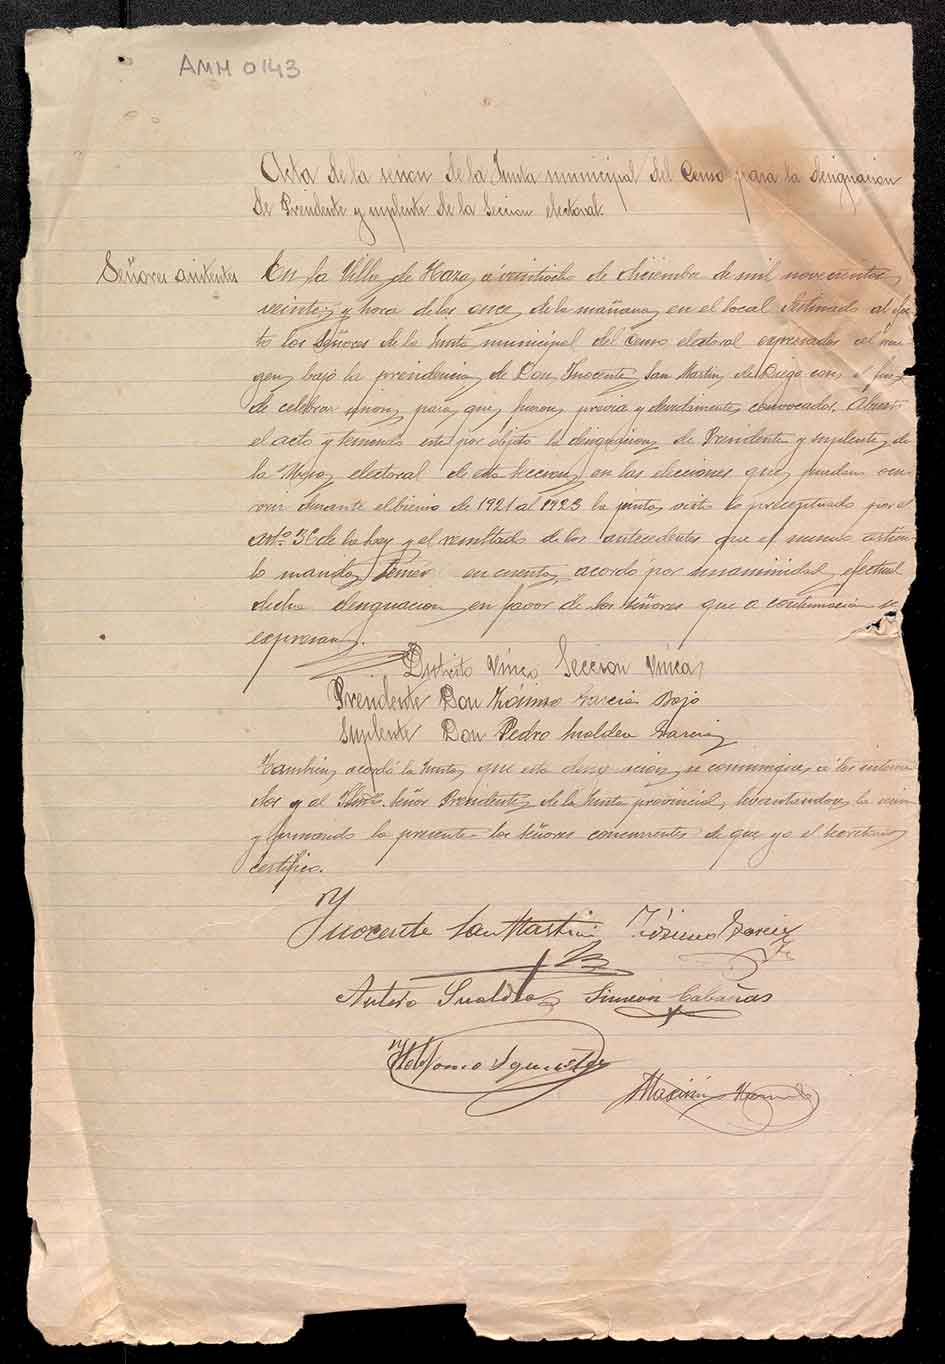 AMH 0143
Acta de la sesion de la Junta municipal del Censo para la designacion
de Presidente y suplente de la Seccion electoral.
Señores asistentes
En la Villa de Haza, a veintiocho de diciembre de mil novecientos
veinte, y hora de las once de la mañana, en el local destinado al efec-
to los Señores de la Junta municipal del censo electoral expresados al mar-
gen, bajo la presidencia de Don Inocente San Martin de Diego con el fin
de celebrar sesion para que fueron previa y debidamente convocados. Abierto
el acto y teniendo este por objeto la designacion de Presidente y suplente de
la Mesa electoral de esta Seccion en las elecciones que puedan ocu-
rrir durante el bienio de 1921 al 1923 la junta, visto lo preceptuado por el
artº 36 de la Ley y el resultado de los antecedentes que el mismo articu-
lo manda tener en cuenta, acordó por unanimidad, efectuar
dicha designacion en favor de los Señores que a continuación se
expresan.
Distrito Unico Seccion Unica
Presidente Don Zósimo Garcia Bajo
Suplente Don Pedro Garcia
Tambien acordó la Junta, que esta designacion, se comunique a los interesa-
dos y al Iltmo. Señor Presidente de la Junta provincial, levantandose la sesion
y firmando la presente los Señores concurrentes de que yo el Secretario
certifico.
Inocente San Martin Zósimo Garcia
Simeon Cabañas
Ildefonso